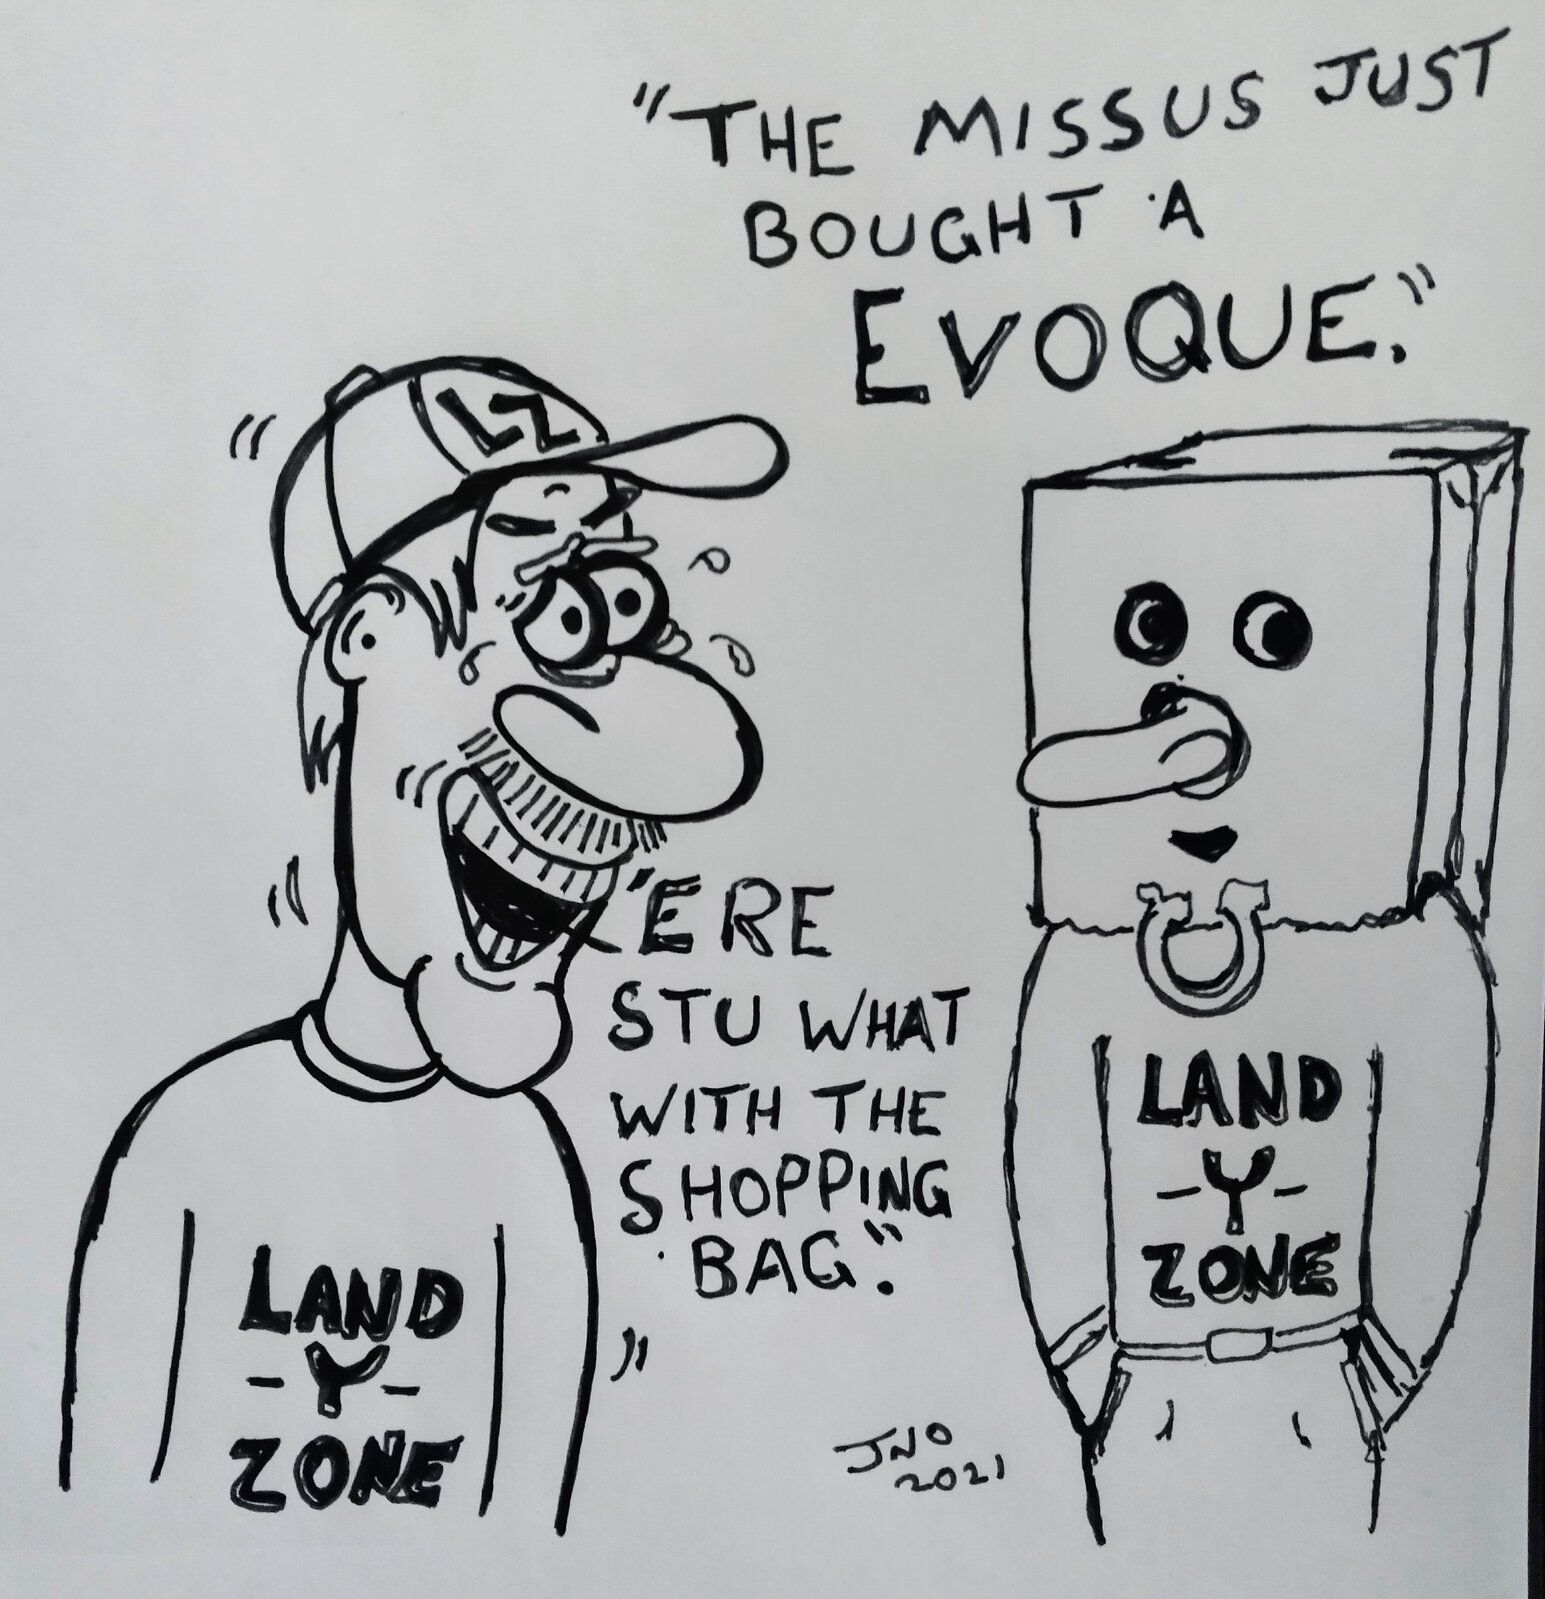 "THE MISSUS JUST
BOUGHT A
EVOQUE."
LZ
'ERE
STU WHAT
WITH THE
SHOPPING
BAG."
LAND
-Y-
ZONE
LAND
-Y-
ZONE
JNO
2021